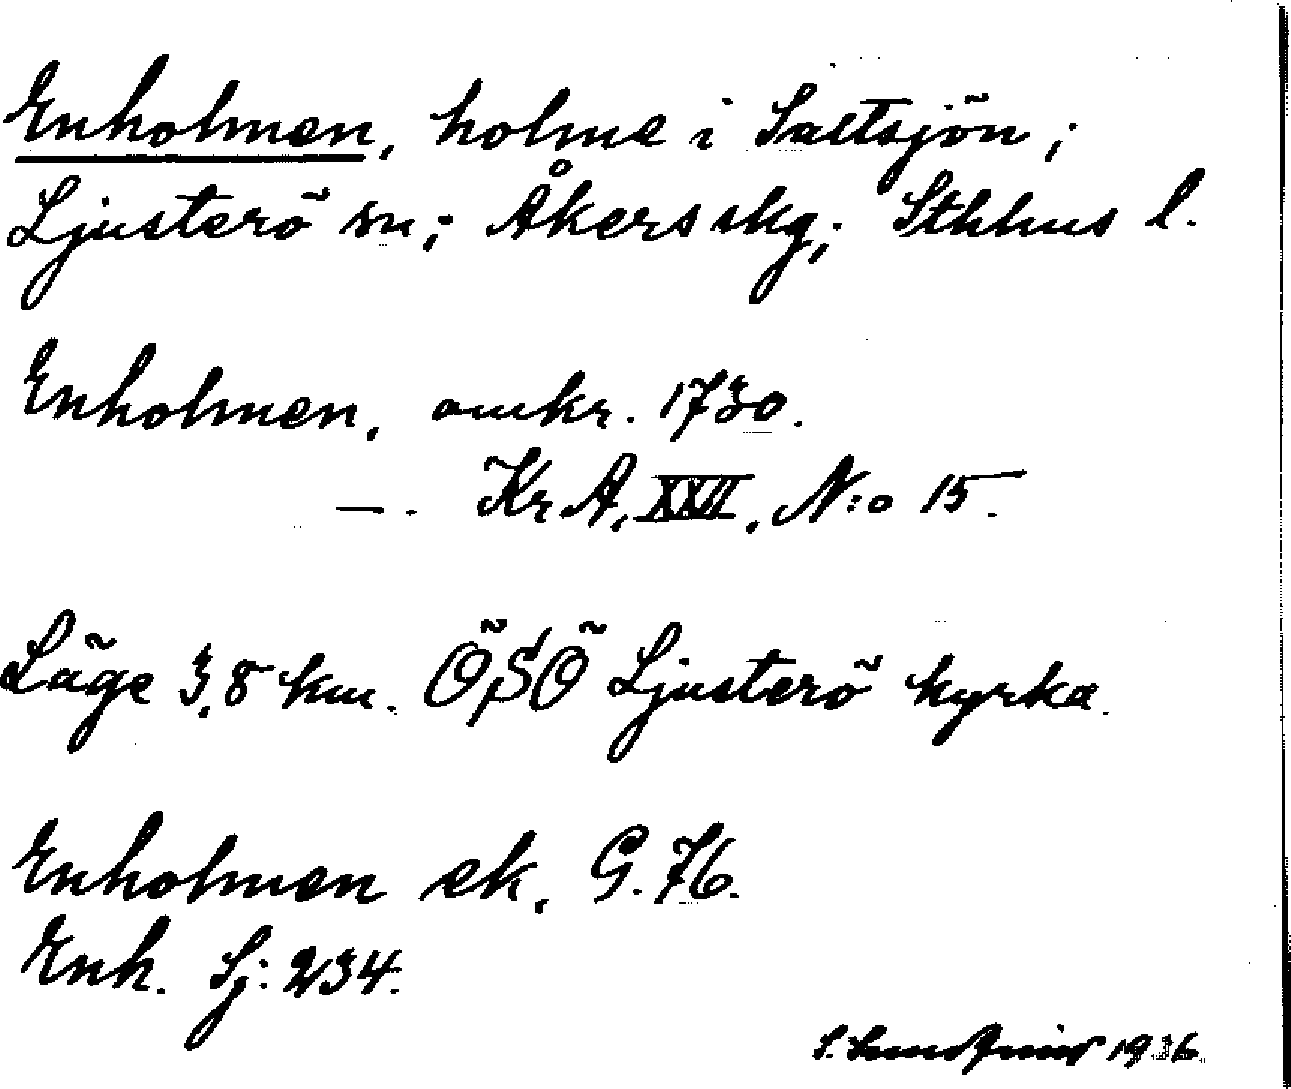 Enholmen, holme i Saltsjön;
Ljusterö sn; Åkers skg; Sthlms l.
Enholmen, omkr. 1730.
—. Kr A, XXVII, N:o 15.
Läge 3,8 km. ÖSÖ Ljusterö kyrka.
Enholmen ek. G. 76.
Enh. Sj: 234.
S. 1936.